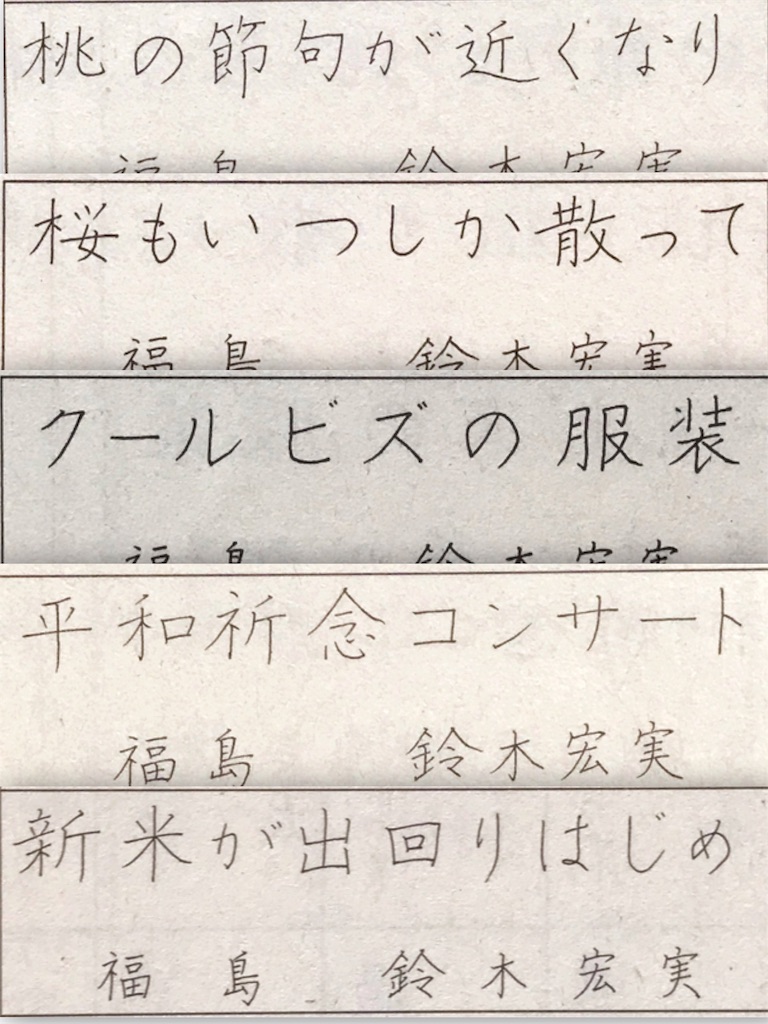 桃の節句が近くなり
福島 鈴木宏実
桜もいつしか散って
福島 鈴木宏実
クールビズの服装
福島 鈴木宏実
平和祈念コンサート
福島 鈴木宏実
新米が出回りはじめ
福島 鈴木宏実